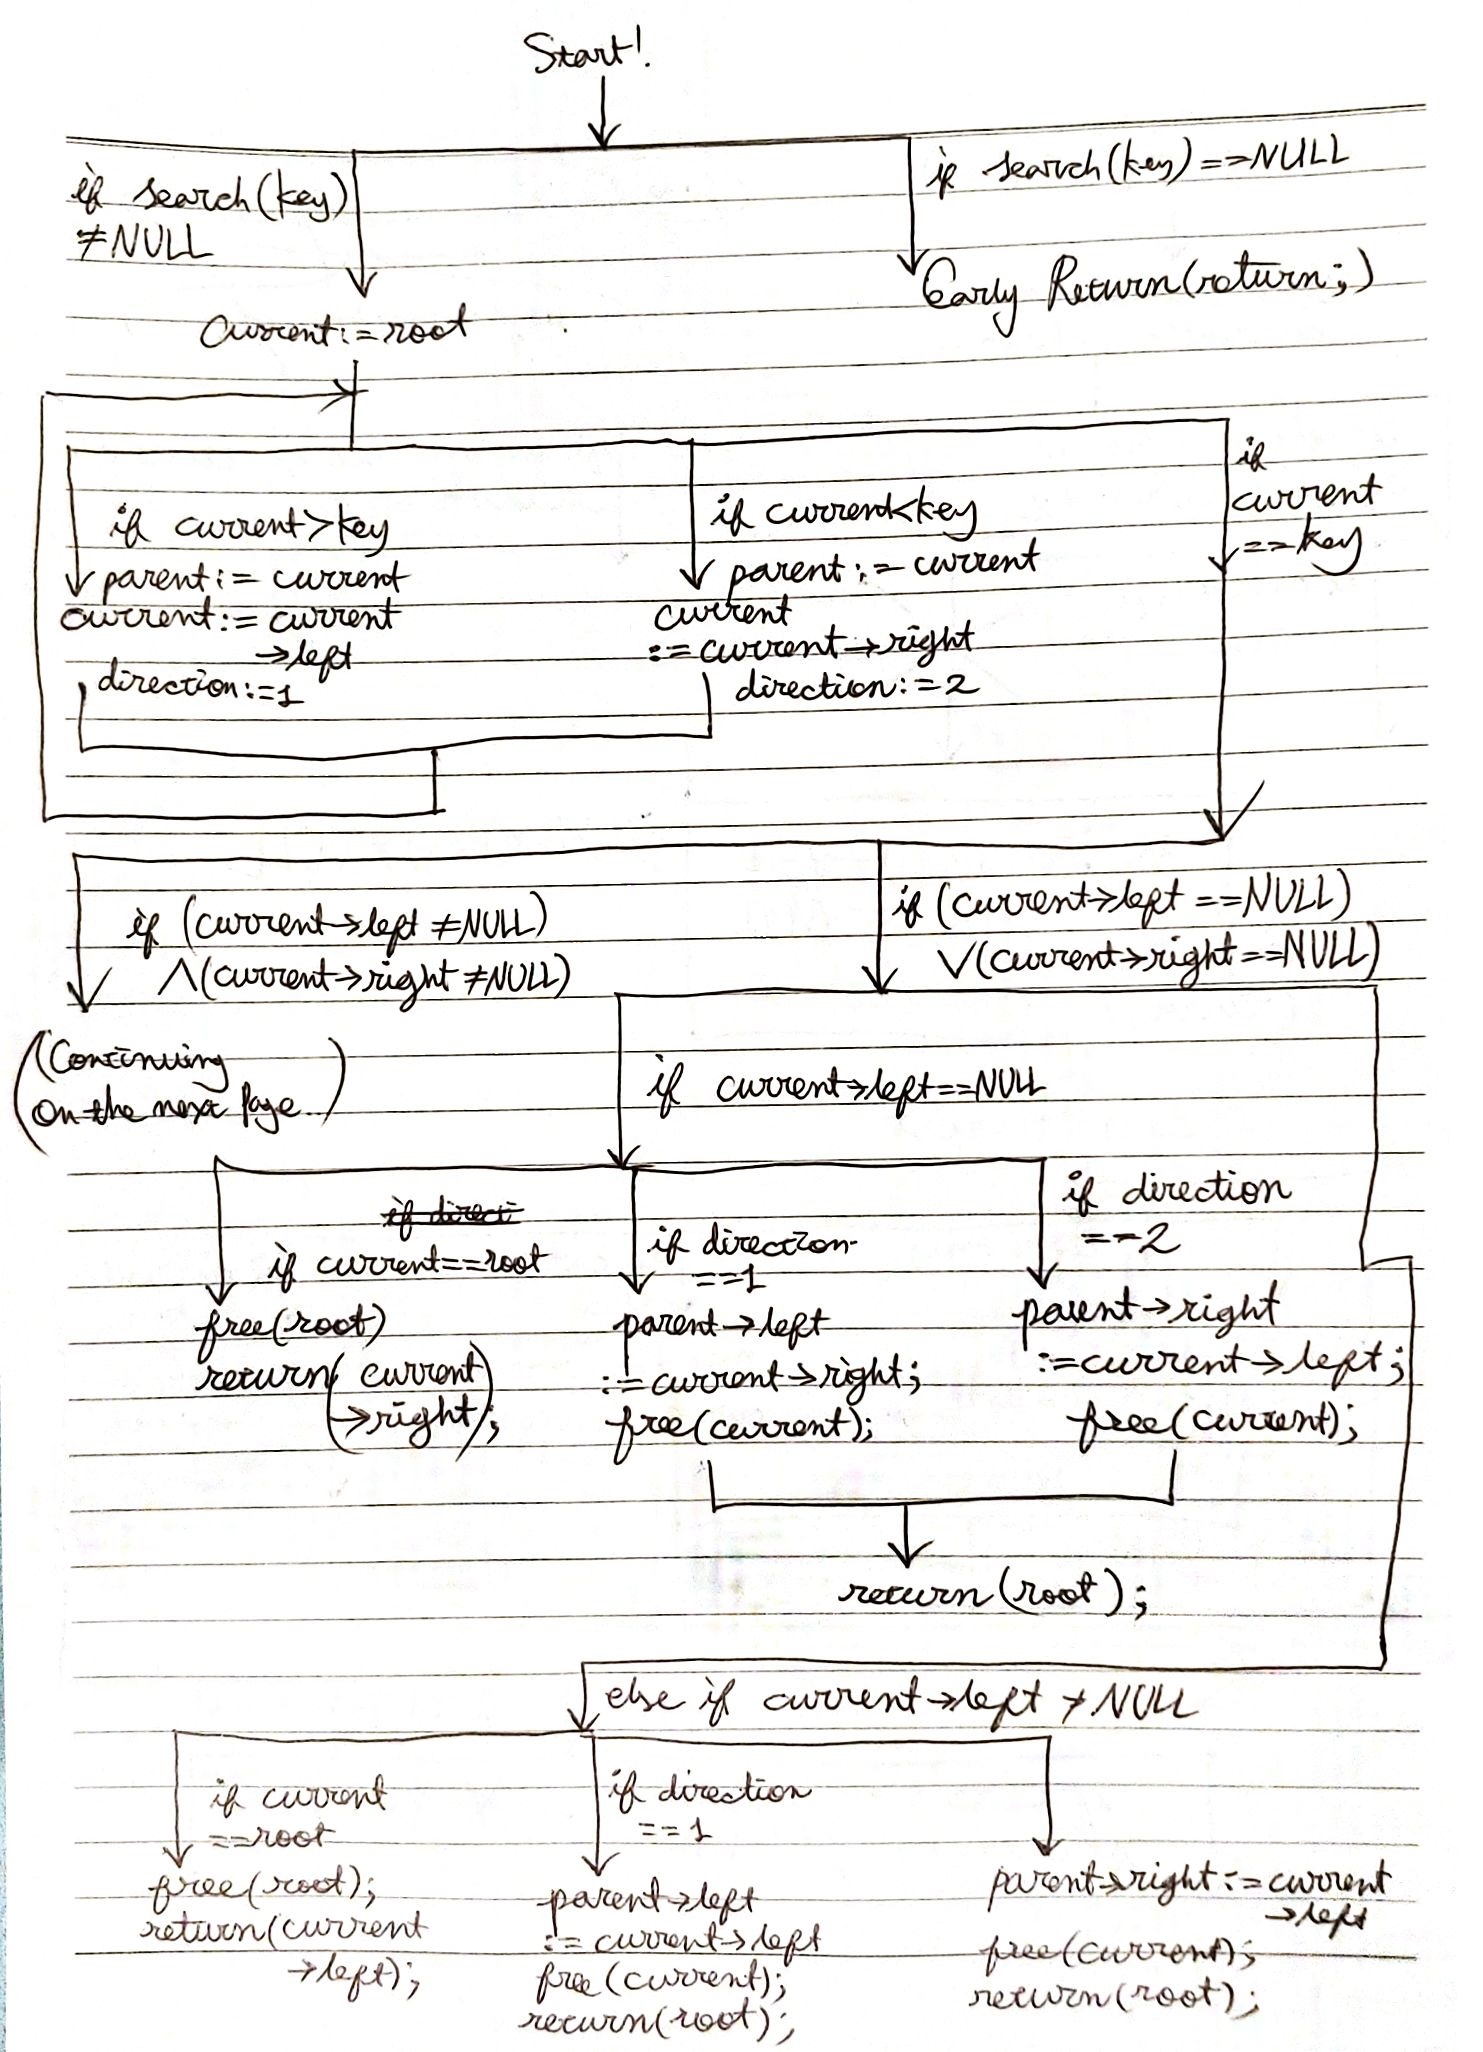 Start!
if search(key)
≠NULL
if search(key)==NULL
Early Return(return;)
Current:=root
if current>key
parent:= current
current:= current
→left
direction:=1
if current<key
parent:= current
current
:= current→right
direction:=2
if
current
==key
if (current→left ≠NULL)
∧(current→right ≠NULL)
if (current→left ==NULL)
∨(current→right==NULL)
(Continuing
on the next Page..)
if current→left==NULL
if direct
if current==root
free(root)
return(current
→right);
if direction
==1
parent→left
:=current→right;
free(current);
if direction
==2
parent→right
:=current→left;
free(current);
return(root);
else if current→left ≠ NULL
if current
==root
free(root);
return(current
→left);
if direction
==1
parent→left
:= current→left
free(current);
return(root);
parent→right:=current
→left
free(current);
return(root);